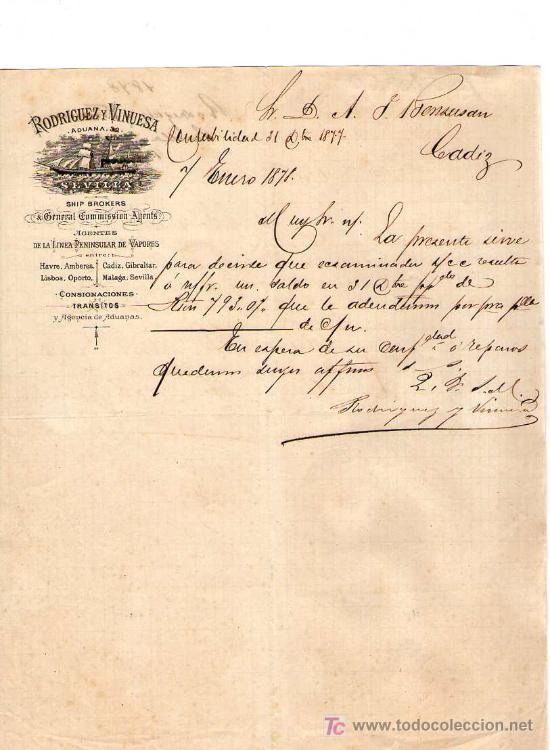 RODRIGUEZ Y VINUESA
ADUANA, 32.
SEVILLA
SHIP BROKERS
& General Commission Agents
AGENTES
DE LA LINEA PENINSULAR DE VAPORES
entre:
Havre, Amberes, Cadiz, Gibraltar,
Lisboa, Oporto, Malaga, Sevilla
CONSIGNACIONES
TRANSITOS
y Agencia de Aduanas.
Sr. D. A. J. Bensusan
Cadiz
Contabilidad 31 Dbre 1877
7 Enero 1878.
Muy Sr. n/.
La presente sirve
para decirle que examinada s/cc resulta
á n/fr. un saldo en 31 Dbre ppdo de
Rvn 793.07. que le adeudamos por pra
de C/n.
En espera de su confdad ó reparos
quedamos suyos affmos
Q. B. S. M.
Rodriguez y Vinuesa
TC www.todocoleccion.net